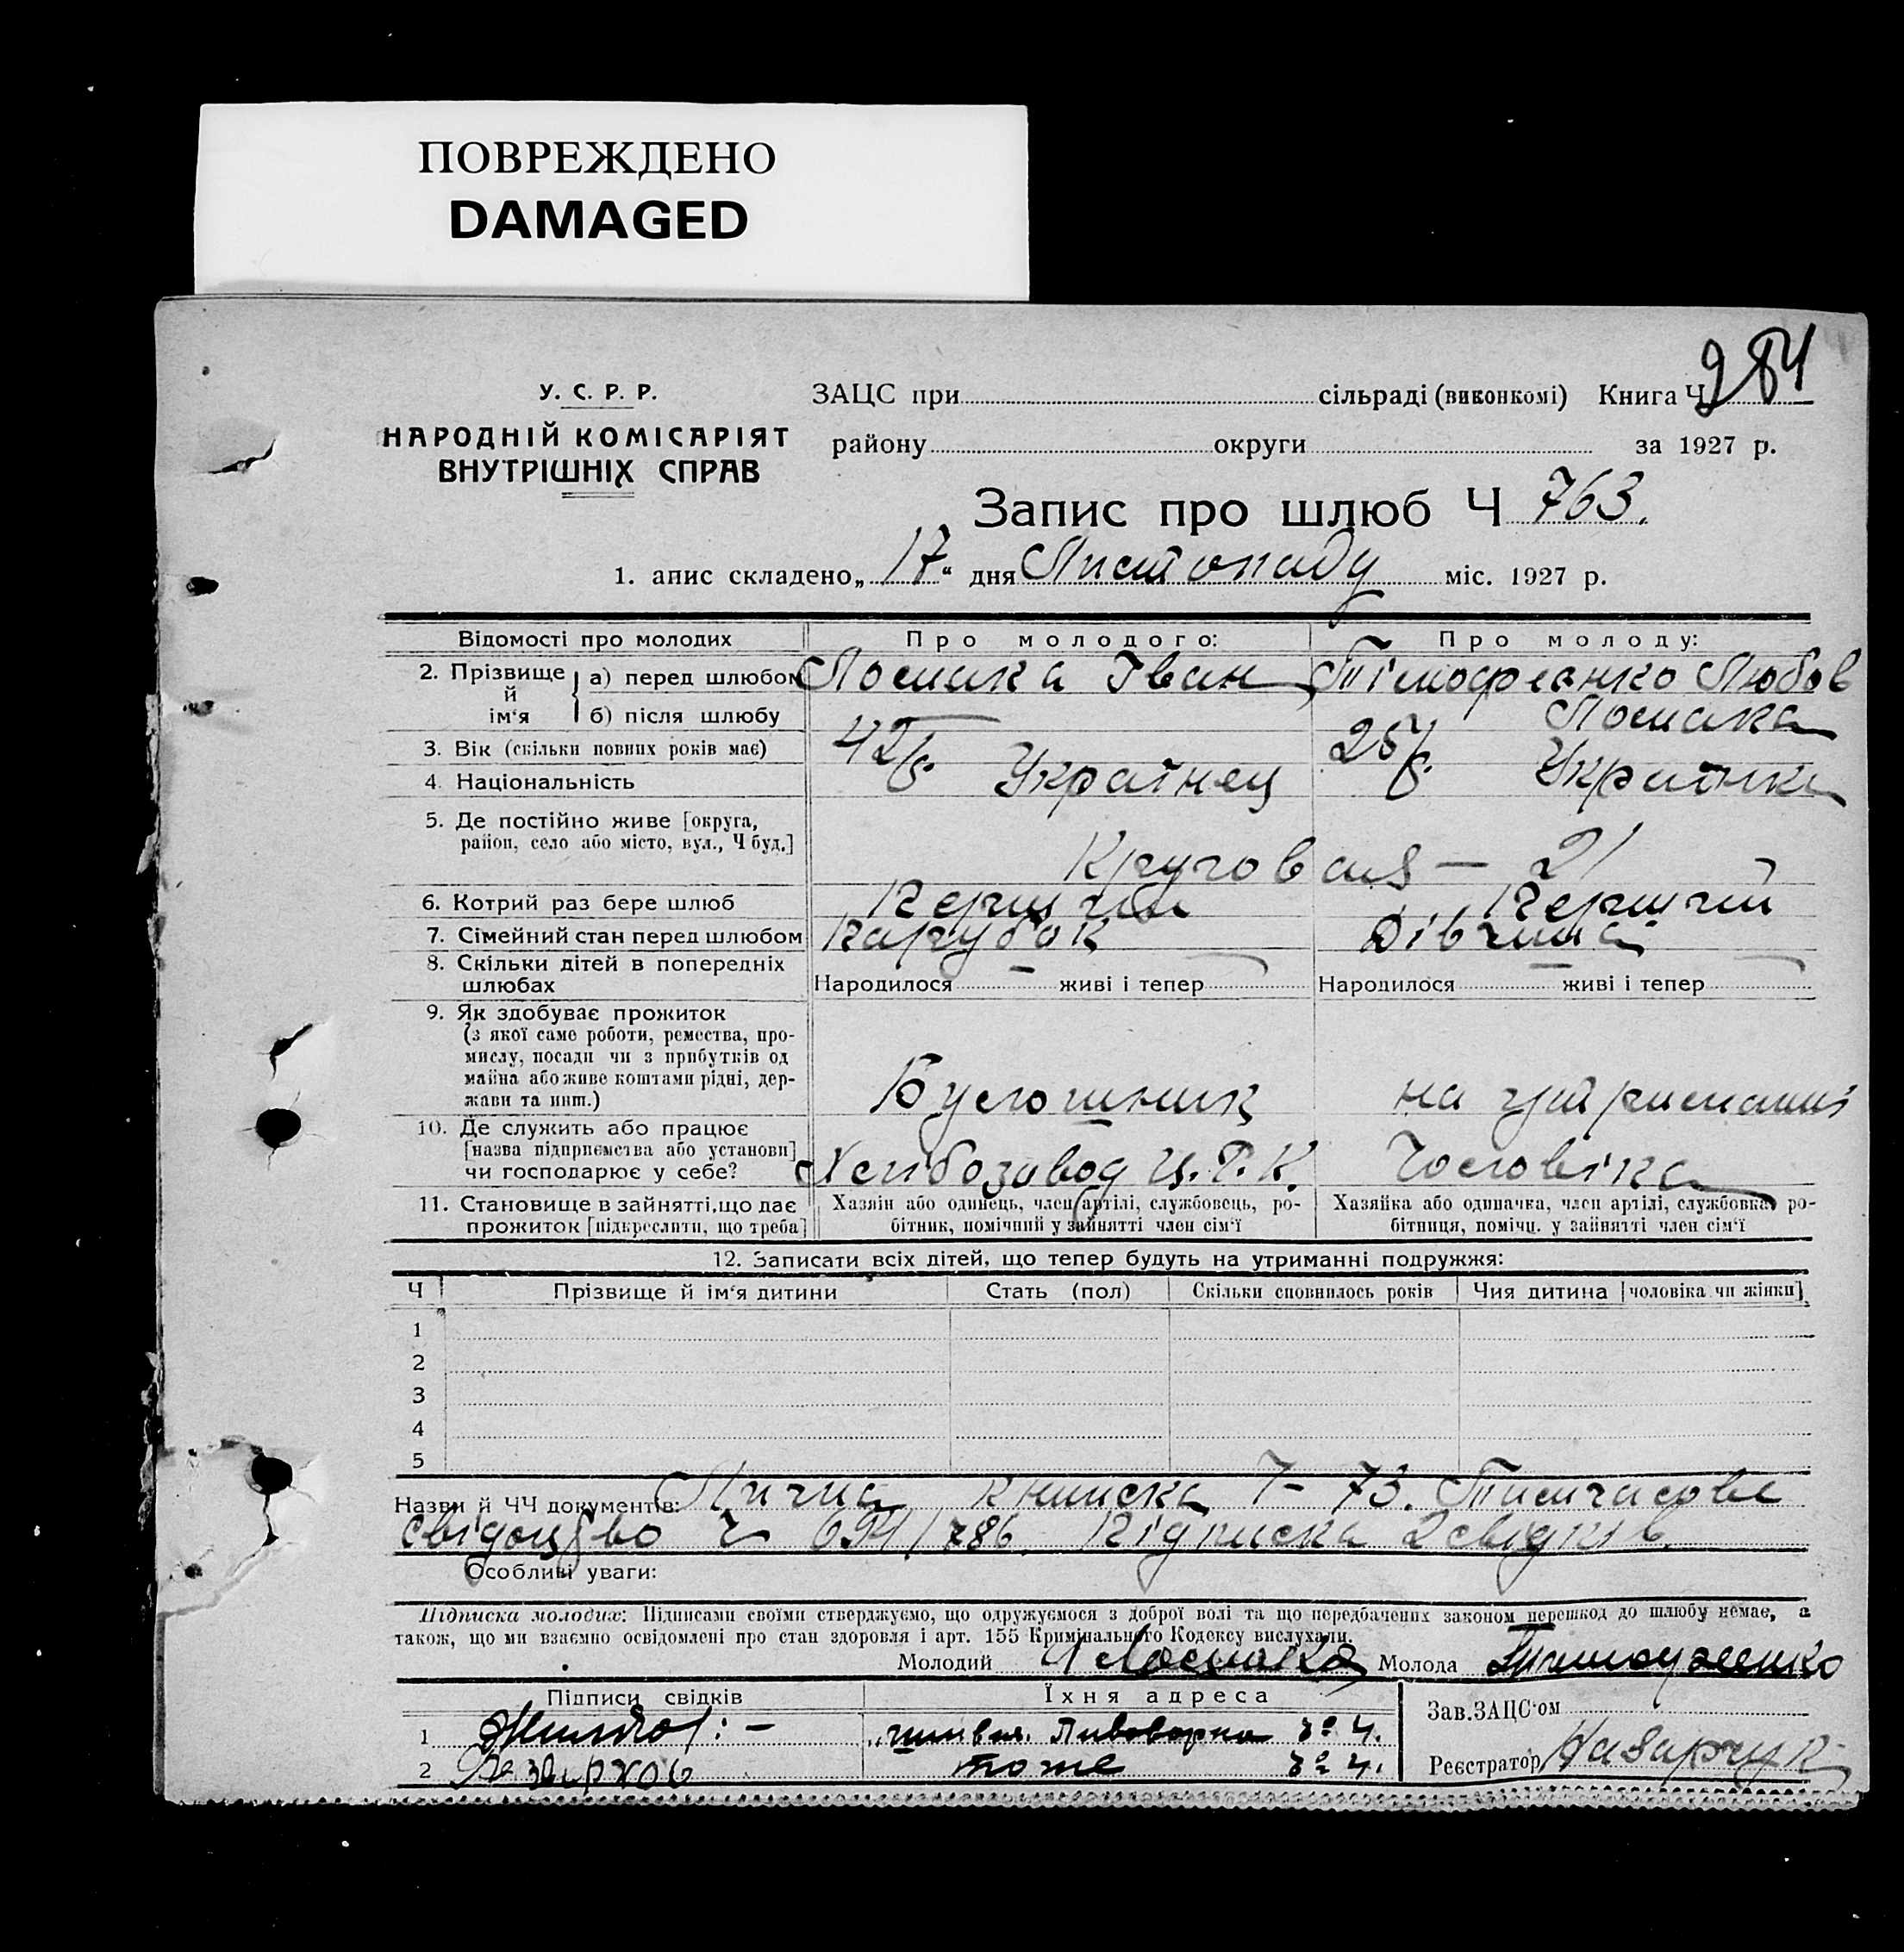 ПОВРЕЖДЕНО
DAMAGED
284
У. С. Р. Р.
НАРОДНІЙ КОМІСАРІЯТ
ВНУТРІШНІХ СПРАВ
ЗАЦС при сільраді (виконкомі) Книга Ч
району округи за 1927 р.
Запис про шлюб Ч 763.
1. апис складено „17“ дня Листопаду міс. 1927 р.
Відомості про молодих Про молодого: Про молоду:
2. Прізвище й ім‘я а) перед шлюбом Ломака Іван Тімофєєнко Любов
б) після шлюбу Ломака
3. Вік (скільки повних років має) 42 25
4. Національність Украінец Украінка
5. Де постійно живе [округа,
район, село або місто, вул., Ч буд.]
Круговая — 21
6. Котрий раз бере шлюб Перший Перший
7. Сімейний стан перед шлюбом Парубок Дівчина
8. Скільки дітей в попередніх
шлюбах Народилося — живі і тепер — Народилося — живі і тепер —
9. Як здобуває прожиток
(з якої саме роботи, ремества, про-
мислу, посади чи з прибутків од
майна або живе коштами рідні, дер-
жави та инш.)
на утриманні
10. Де служить або працює
[назва підприємства або установи]
чи господарює у себе? Хлібозавод Ц.Р.К. Чоловіка
11. Становище в зайнятті, що дає
прожиток [підкреслити, що треба]
Хазяін або одинець, член артілі, службовець, ро-
бітник, помічний у зайнятті член сім‘ї
Хазяйка або одиначка, член артілі, службовка, ро-
бітниця, помічн. у зайнятті член сім‘ї
12. Записати всіх дітей, що тепер будуть на утриманні подружжя:
Ч Прізвище й ім‘я дитини Стать (пол) Скільки сповнилось років Чия дитина [чоловіка чи жінки]
1
2
3
4
5
Назви й ЧЧ документів: Лична книжка 7-73. Тимчасове
свідоцтво Ч 694/786. Підписка 2 свідків.
Особливі уваги:
Підписка молодих: Підписами своїми стверджуємо, що одружуємося з доброї волі та що передбачених законом перешкод до шлюбу немає, а
також, що ми взаємно освідомлені про стан здоровля і арт. 155 Кримінального Кодексу вислухали.
Молодий И Ломака Молода
Підписи свідків Їхня адреса Зав. ЗАЦС‘ом
1 Пивоварна № 4.
2 тоже № 4.
Реєстратор Назарчук